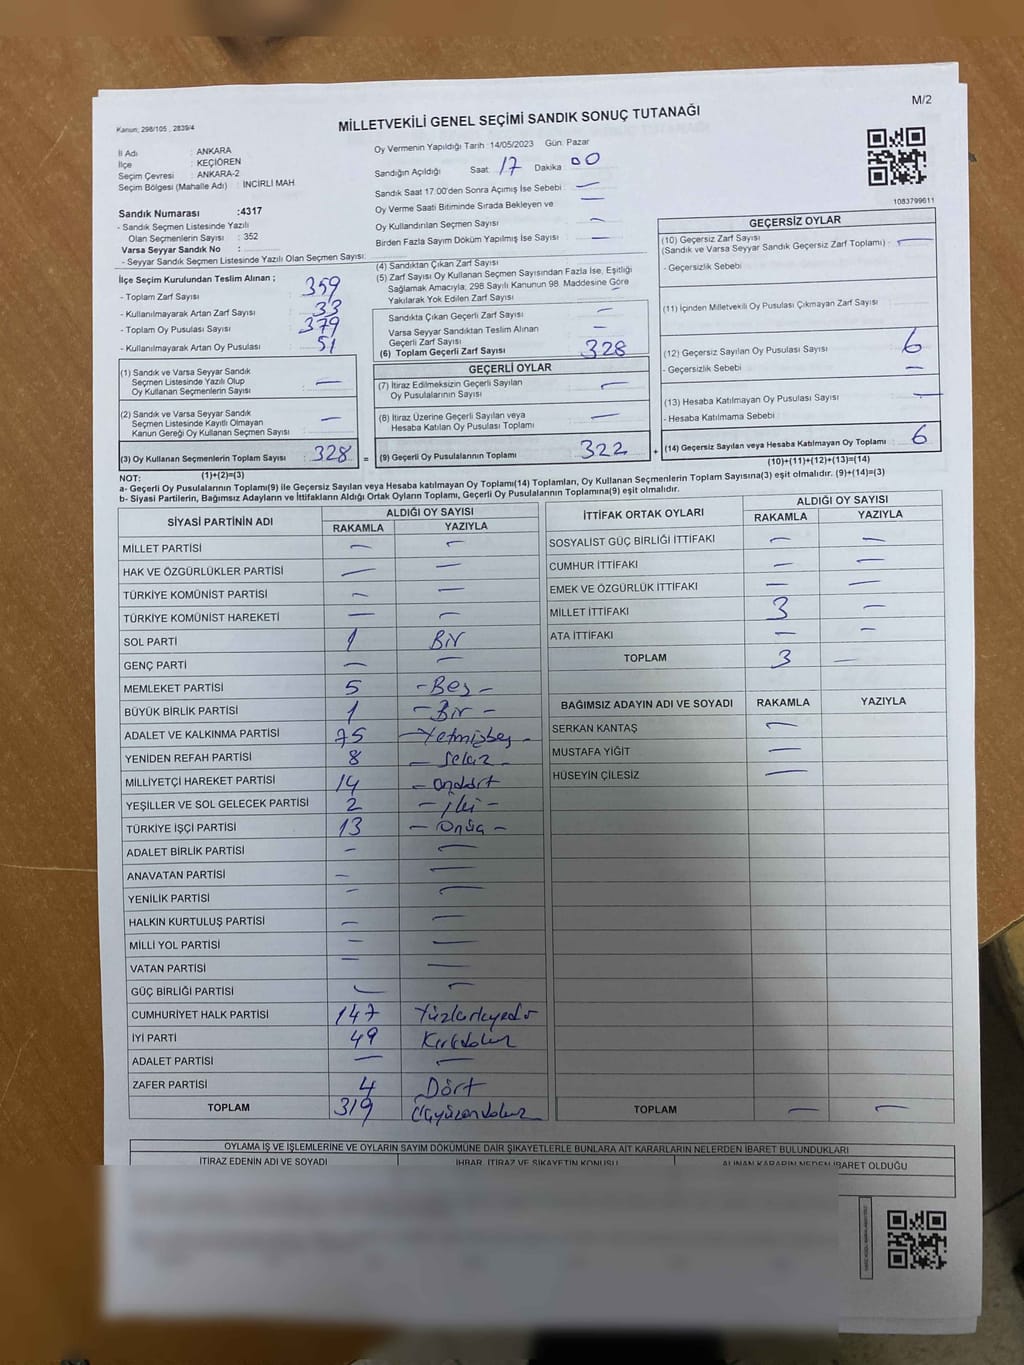 M/2
Kanun; 298/105 , 2839/4
MİLLETVEKİLİ GENEL SEÇİMİ SANDIK SONUÇ TUTANAĞI
İl Adı : ANKARA
İlçe : KEÇİÖREN
Seçim Çevresi : ANKARA-2
Seçim Bölgesi (Mahalle Adı) : INCIRLI MAH
Sandık Numarası :4317
- Sandık Seçmen Listesinde Yazılı
Olan Seçmenlerin Sayısı : 352
Varsa Seyyar Sandık No :
- Seyyar Sandık Seçmen Listesinde Yazılı Olan Seçmen Sayısı:
Oy Vermenin Yapıldığı Tarih : 14/05/2023 Gün: Pazar
Sandığın Açıldığı Saat 17 Dakika 00
Sandık Saat 17.00'den Sonra Açımış İse Sebebi —
Oy Verme Saati Bitiminde Sırada Bekleyen ve —
Oy Kullandırılan Seçmen Sayısı —
Birden Fazla Sayım Döküm Yapılmış İse Sayısı —
1083799611
İlçe Seçim Kurulundan Teslim Alınan ;
- Toplam Zarf Sayısı : 359
- Kullanılmayarak Artan Zarf Sayısı : 33
- Toplam Oy Pusulası Sayısı : 379
- Kullanılmayarak Artan Oy Pusulası : 51
(1) Sandık ve Varsa Seyyar Sandık
Seçmen Listesinde Yazılı Olup
Oy Kullanan Seçmenlerin Sayısı —
(2) Sandık ve Varsa Seyyar Sandık
Seçmen Listesinde Kayıtlı Olmayan
Kanun Gereği Oy Kullanan Seçmen Sayısı —
(3) Oy Kullanan Seçmenlerin Toplam Sayısı 328 =
(1)+(2)=(3)
(4) Sandıktan Çıkan Zarf Sayısı
(5) Zarf Sayısı Oy Kullanan Seçmen Sayısından Fazla İse, Eşitliği
Sağlamak Amacıyla; 298 Sayılı Kanunun 98. Maddesine Göre
Yakılarak Yok Edilen Zarf Sayısı —
Sandıkta Çıkan Geçerli Zarf Sayısı —
Varsa Seyyar Sandıktan Teslim Alınan
Geçerli Zarf Sayısı —
(6) Toplam Geçerli Zarf Sayısı 328
GEÇERLİ OYLAR
(7) İtiraz Edilmeksizin Geçerli Sayılan
Oy Pusulalarının Sayısı —
(8) İtiraz Üzerine Geçerli Sayılan veya
Hesaba Katılan Oy Pusulası Toplamı —
(9) Geçerli Oy Pusulalarının Toplamı 322 +
GEÇERSİZ OYLAR
(10) Geçersiz Zarf Sayısı
(Sandık ve Varsa Seyyar Sandık Geçersiz Zarf Toplamı) - —
- Geçersizlik Sebebi
(11) İçinden Milletvekili Oy Pusulası Çıkmayan Zarf Sayısı
(12) Geçersiz Sayılan Oy Pusulası Sayısı 6
- Geçersizlik Sebebi —
(13) Hesaba Katılmayan Oy Pusulası Sayısı —
- Hesaba Katılmama Sebebi
(14) Geçersiz Sayılan veya Hesaba Katılmayan Oy Toplamı 6
(10)+(11)+(12)+(13)=(14)
NOT:
a- Geçerli Oy Pusulalarının Toplamı(9) ile Geçersiz Sayılan veya Hesaba katılmayan Oy Toplamı(14) Toplamları, Oy Kullanan Seçmenlerin Toplam Sayısına(3) eşit olmalıdır. (9)+(14)=(3)
b- Siyasi Partilerin, Bağımsız Adayların ve İttifakların Aldığı Ortak Oyların Toplamı, Geçerli Oy Pusulalarının Toplamına(9) eşit olmalıdır.
SİYASİ PARTİNİN ADI ALDIĞI OY SAYISI
RAKAMLA YAZIYLA
MİLLET PARTİSİ — —
HAK VE ÖZGÜRLÜKLER PARTİSİ — —
TÜRKİYE KOMÜNİST PARTİSİ — —
TÜRKİYE KOMÜNİST HAREKETİ — —
SOL PARTİ 1 Bir
GENÇ PARTİ — —
MEMLEKET PARTİSİ 5 -Beş-
BÜYÜK BİRLİK PARTİSİ 1 -Bir-
ADALET VE KALKINMA PARTİSİ 75 -Yetmişbeş-
YENİDEN REFAH PARTİSİ 8 -Sekiz-
MİLLİYETÇİ HAREKET PARTİSİ 14 -Ondört
YEŞİLLER VE SOL GELECEK PARTİSİ 2 -İki-
TÜRKİYE İŞÇİ PARTİSİ 13 -Onüç-
ADALET BİRLİK PARTİSİ — —
ANAVATAN PARTİSİ — —
YENİLİK PARTİSİ — —
HALKIN KURTULUŞ PARTİSİ — —
MİLLİ YOL PARTİSİ — —
VATAN PARTİSİ — —
GÜÇ BİRLİĞİ PARTİSİ — —
CUMHURİYET HALK PARTİSİ 147 Yüzkırkyedi
İYİ PARTİ 49 Kırkdokuz
ADALET PARTİSİ — —
ZAFER PARTİSİ 4 Dört
TOPLAM 319 Üçyüzondokuz
İTTİFAK ORTAK OYLARI ALDIĞI OY SAYISI
RAKAMLA YAZIYLA
SOSYALİST GÜÇ BİRLİĞİ İTTİFAKI — —
CUMHUR İTTİFAKI — —
EMEK VE ÖZGÜRLÜK İTTİFAKI — —
MİLLET İTTİFAKI 3 —
ATA İTTİFAKI — —
TOPLAM 3 —
BAĞIMSIZ ADAYIN ADI VE SOYADI RAKAMLA YAZIYLA
SERKAN KANTAŞ —
MUSTAFA YİĞİT —
HÜSEYİN ÇİLESİZ —
TOPLAM — —
OYLAMA İŞ VE İŞLEMLERİNE VE OYLARIN SAYIM DÖKÜMÜNE DAİR ŞİKAYETLERLE BUNLARA AİT KARARLARIN NELERDEN İBARET BULUNDUKLARI
İTİRAZ EDENİN ADI VE SOYADI İHBAR, İTİRAZ VE ŞİKAYETİN KONUSU ALINAN KARARIN NEDEN İBARET OLDUĞU